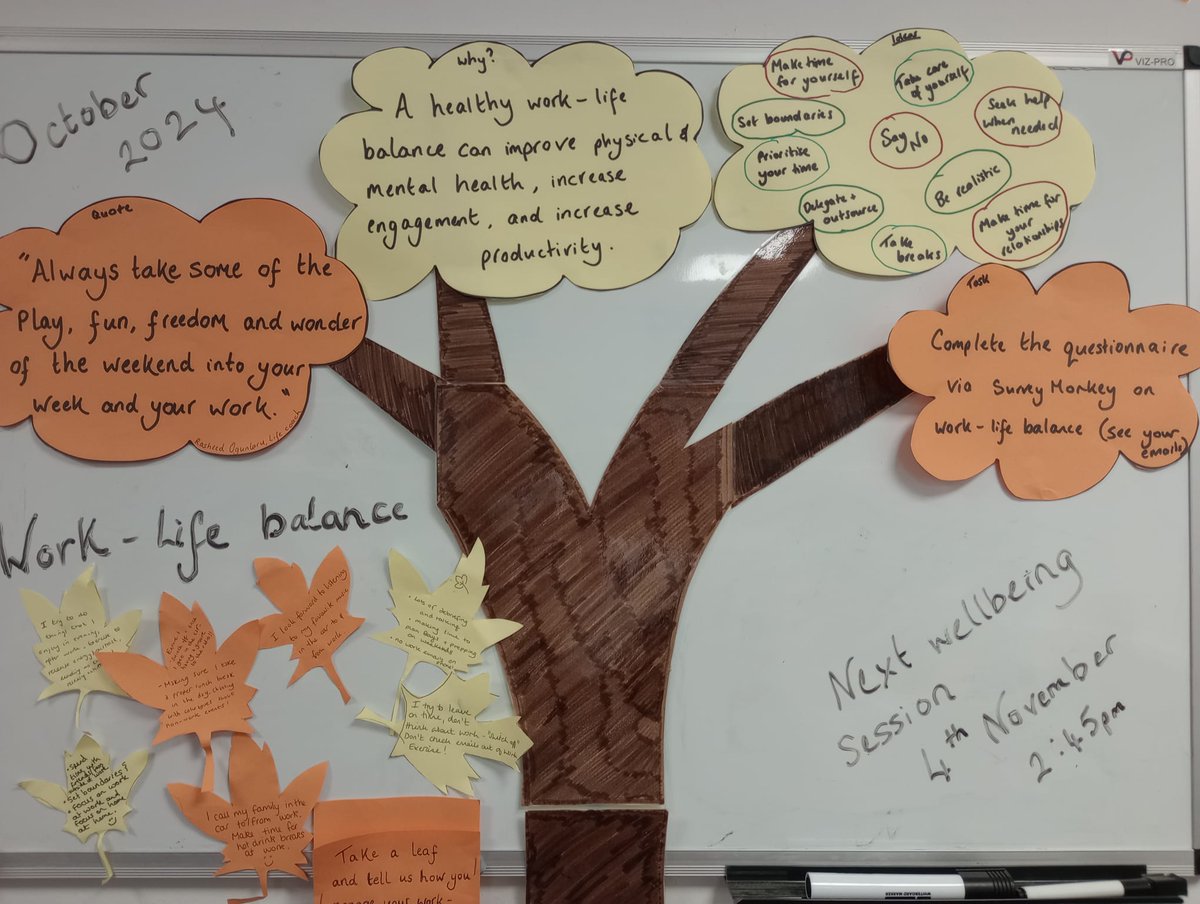 October
2024
VIZ-PRO
Quote
"Always take some of the
Play, fun, freedom and wonder
of the weekend into your
week and your work."
Rasheed Ogunlaru, Life coach
Why?
A healthy work-life
balance can improve physical &
mental health, increase
engagement, and increase
productivity.
Ideas
Make time
for yourself
Take care
of yourself
Set boundaries
Say
No
Seek help
when needed
Prioritise
your time
Be realistic
Delegate +
outsource
Make time for
your
relationships
Take
breaks
Task
Complete the questionnaire
via Survey Monkey on
work-life balance (see your
emails)
Work-Life balance
I try to do
things that I
enjoy in evenings
after work
I look forward to listening
to my favourite
in the car to &
from work
• Lots of
and talking
• making time to
plan
on weekends
• no work emails on
phone!
- Making sure I take
a proper lunch break
in the day. Chatting
with colleagues about
non-work events!
I try to leave
on time, don't
think about work - "Switch off"
Don't check emails out of work
Exercise!
• Spend
time with
• Set boundaries
• Focus on work
at work and
focus on home
at home.
I call my family in the
car to/from work.
Make time for
hot drink breaks
at work.
Take a leaf
and tell us how you
manage your work-
Next wellbeing
session
4th November
2:45pm
WHITEBOARD MARKER